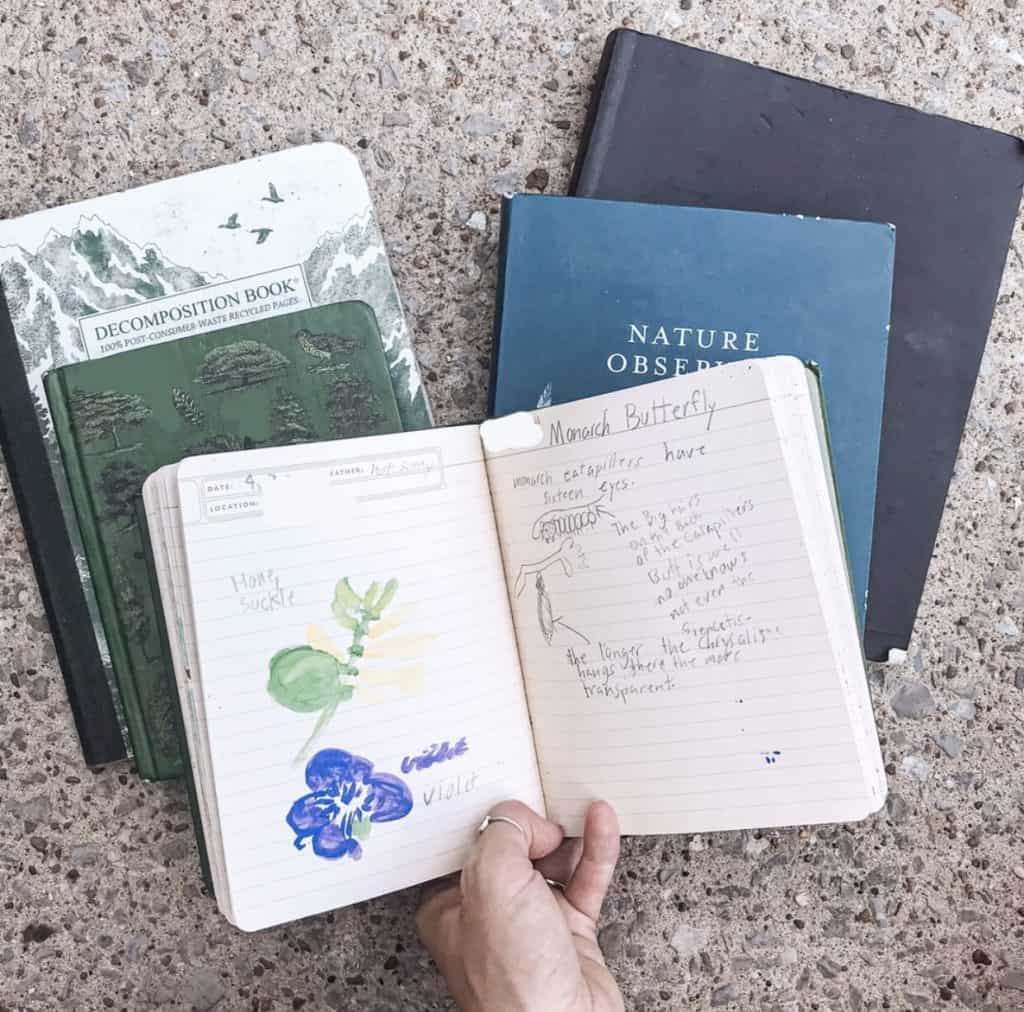 DECOMPOSITION BOOK®
100% POST-CONSUMER-WASTE RECYCLED PAGES
NATURE
DATE: 4
LOCATION:
Honey
Suckle
violet
violet
Monarch Butterfly
monarch catapillers have
sixteen eyes.
The Big hairs
on the Butt
of the catapillers
Butt is use it
no one knows
not even the
the longer the chrysalis
hangs there the more
transparent.